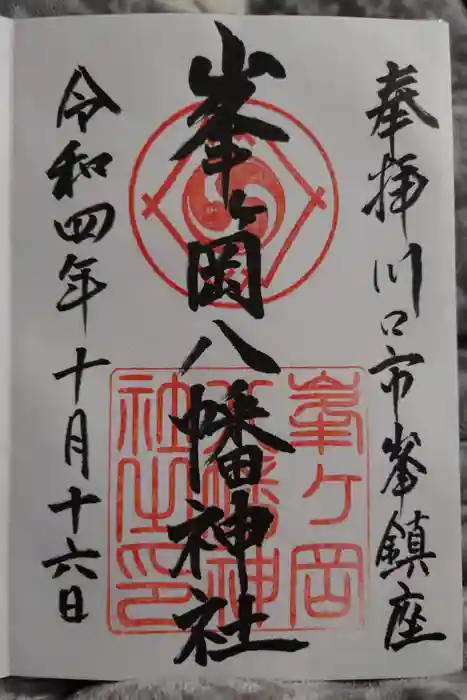 奉拝川口市峯鎮座
峯ヶ岡八幡神社
令和四年十月十六日
峯ヶ岡
八幡神
社之印